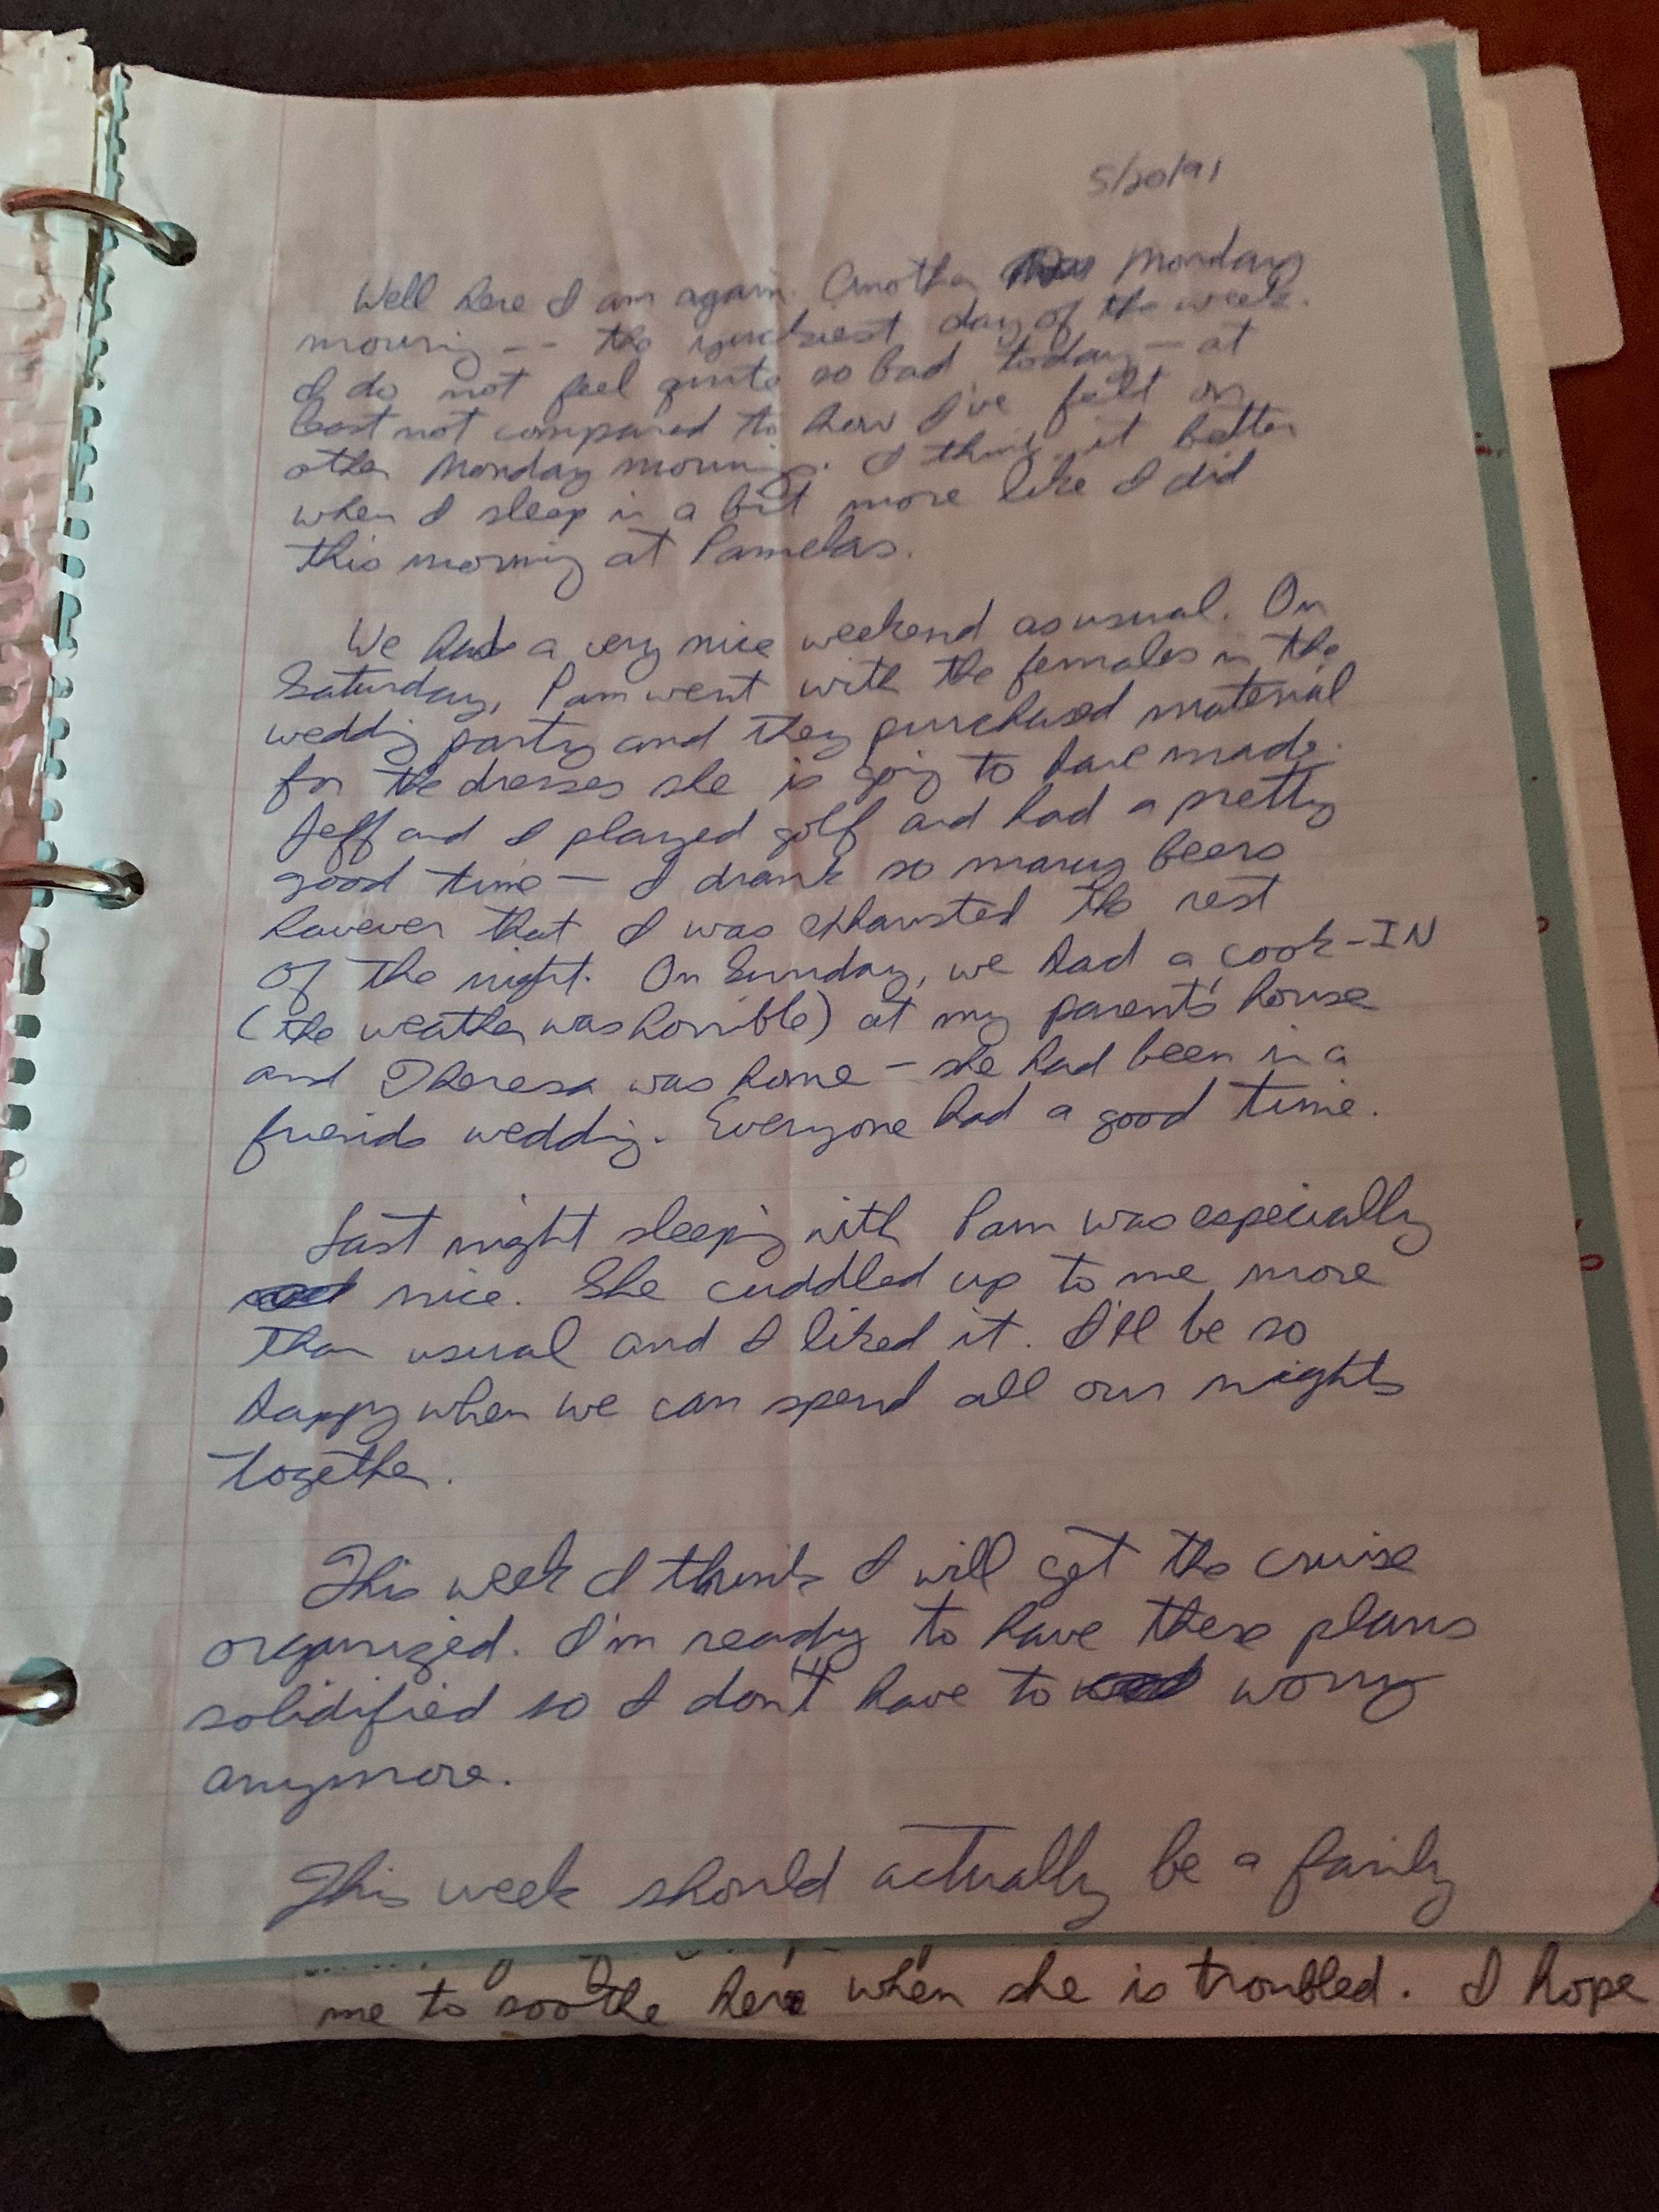 5/20/91
Well here I am again. Another Monday
mouring -- the yuckiest day of the week.
I do not feel quite so bad today — at
least not compared to how I've felt on
other Monday mournings. I think it better
when I sleep in a bit more like I did
this morning at Pamelas.
We had a very nice weekend as usual. On
Saturday, Pam went with the females in the
wedding party and they purchased material
for the dresses she is going to have made.
Jeff and I played golf and had a pretty
good time — I drank so many beers
however that I was exhausted the rest
of the night. On Sunday, we had a cook-IN
(the weather was horrible) at my parent's house
and Theresa was home - she had been in a
friends wedding. Everyone had a good time.
Last night sleeping with Pam was especially
nice. She cuddled up to me more
than usual and I liked it. I'll be so
happy when we can spend all our nights
together.
This week I think I will get the cruise
organized. I'm ready to have these plans
solidified so I don't have to worry
anymore.
This week should actually be a fairly
me to soothe here when she is troubled. I hope